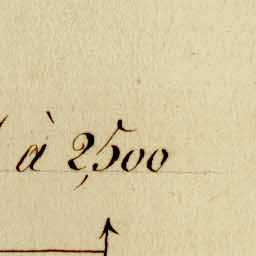 à 2,500